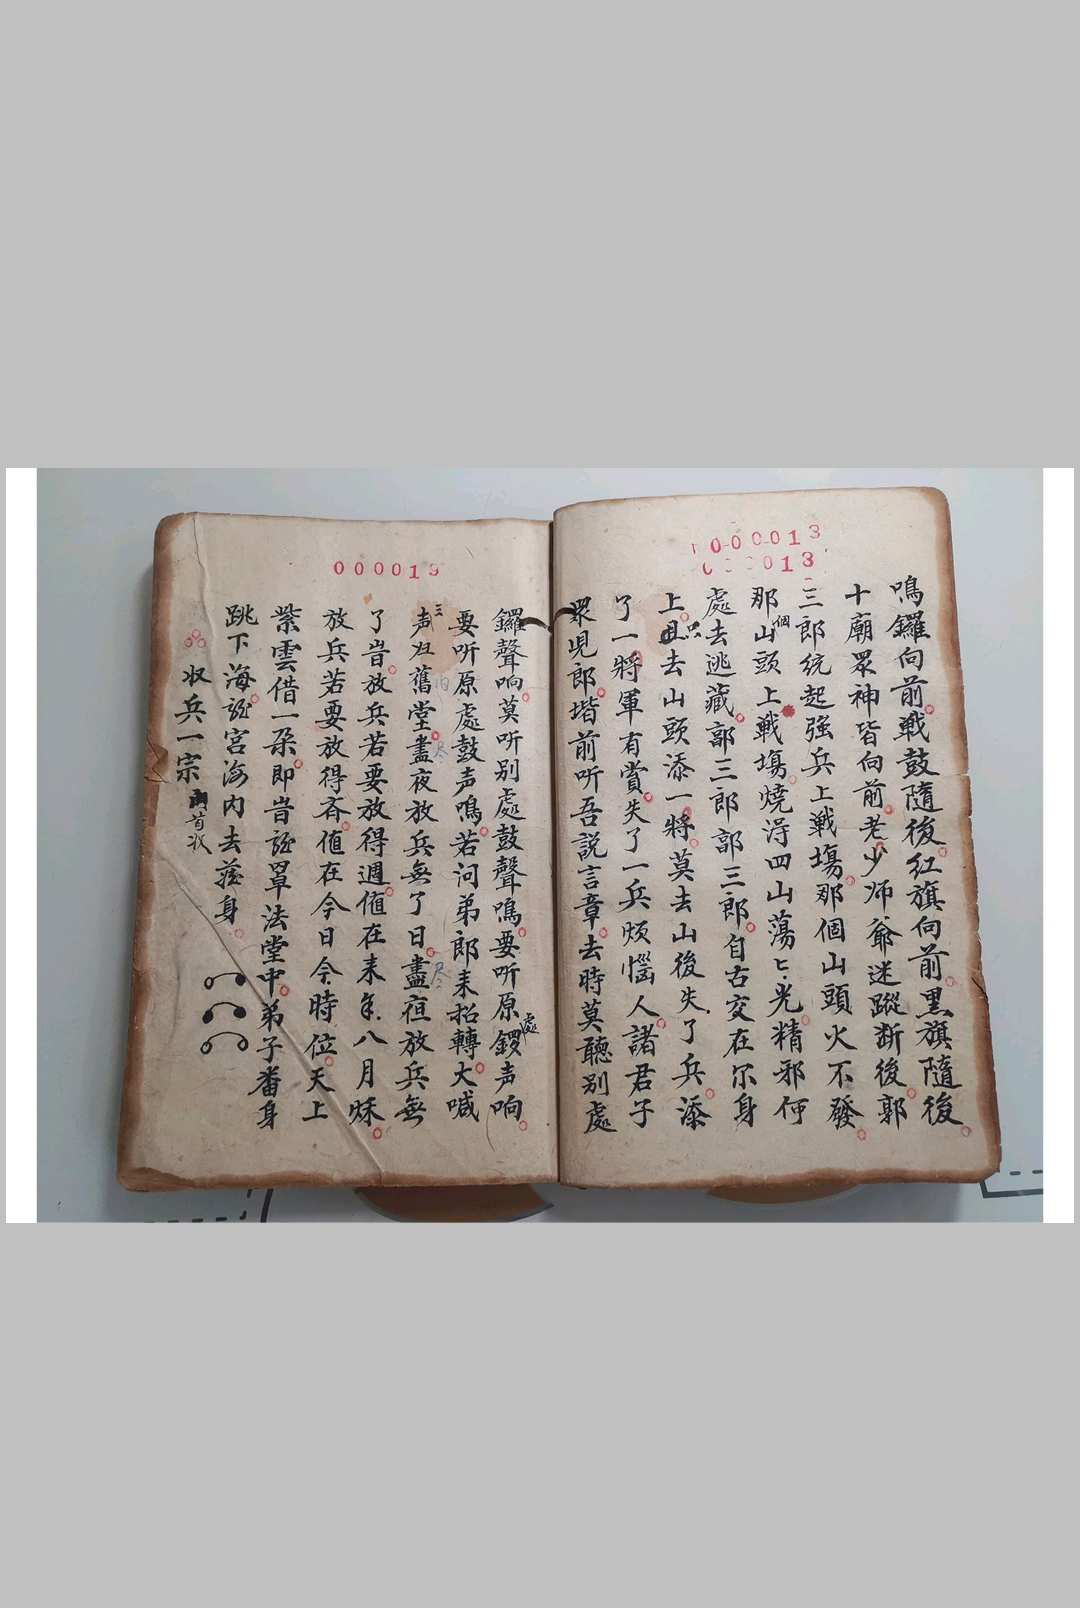 000013
000013
鳴鑼向前戰鼓隨後紅旗向前黑旗隨後
十廟眾神皆向前老少师爺迷蹤断後郭
三郎統起強兵上戰塲那個山頭火不發
那個山頭上戰塲燒浔四山蕩匕光精邪何
處去逃藏郭三郎郭三郎自古交在尔身
上只去山頭添一將莫去山後失了兵添
了一將軍有賞失了一兵煩惱人諸君子
眾児郎堦前听吾説言章去時莫聽別處
000019
鑼聲响莫听別處鼓聲鳴要听原處鑼声响
要听原處鼓声鳴若问弟郎来招轉大喊
三声归舊堂晝夜放兵無了日晝夜放兵無
了旹放兵若要放得週值在来年八月秌
放兵若要放得斉值在今日今時位天上
紫雲借一朶即旹罩法堂中弟子畨身
跳下海宮海内去藏身
収兵一宗